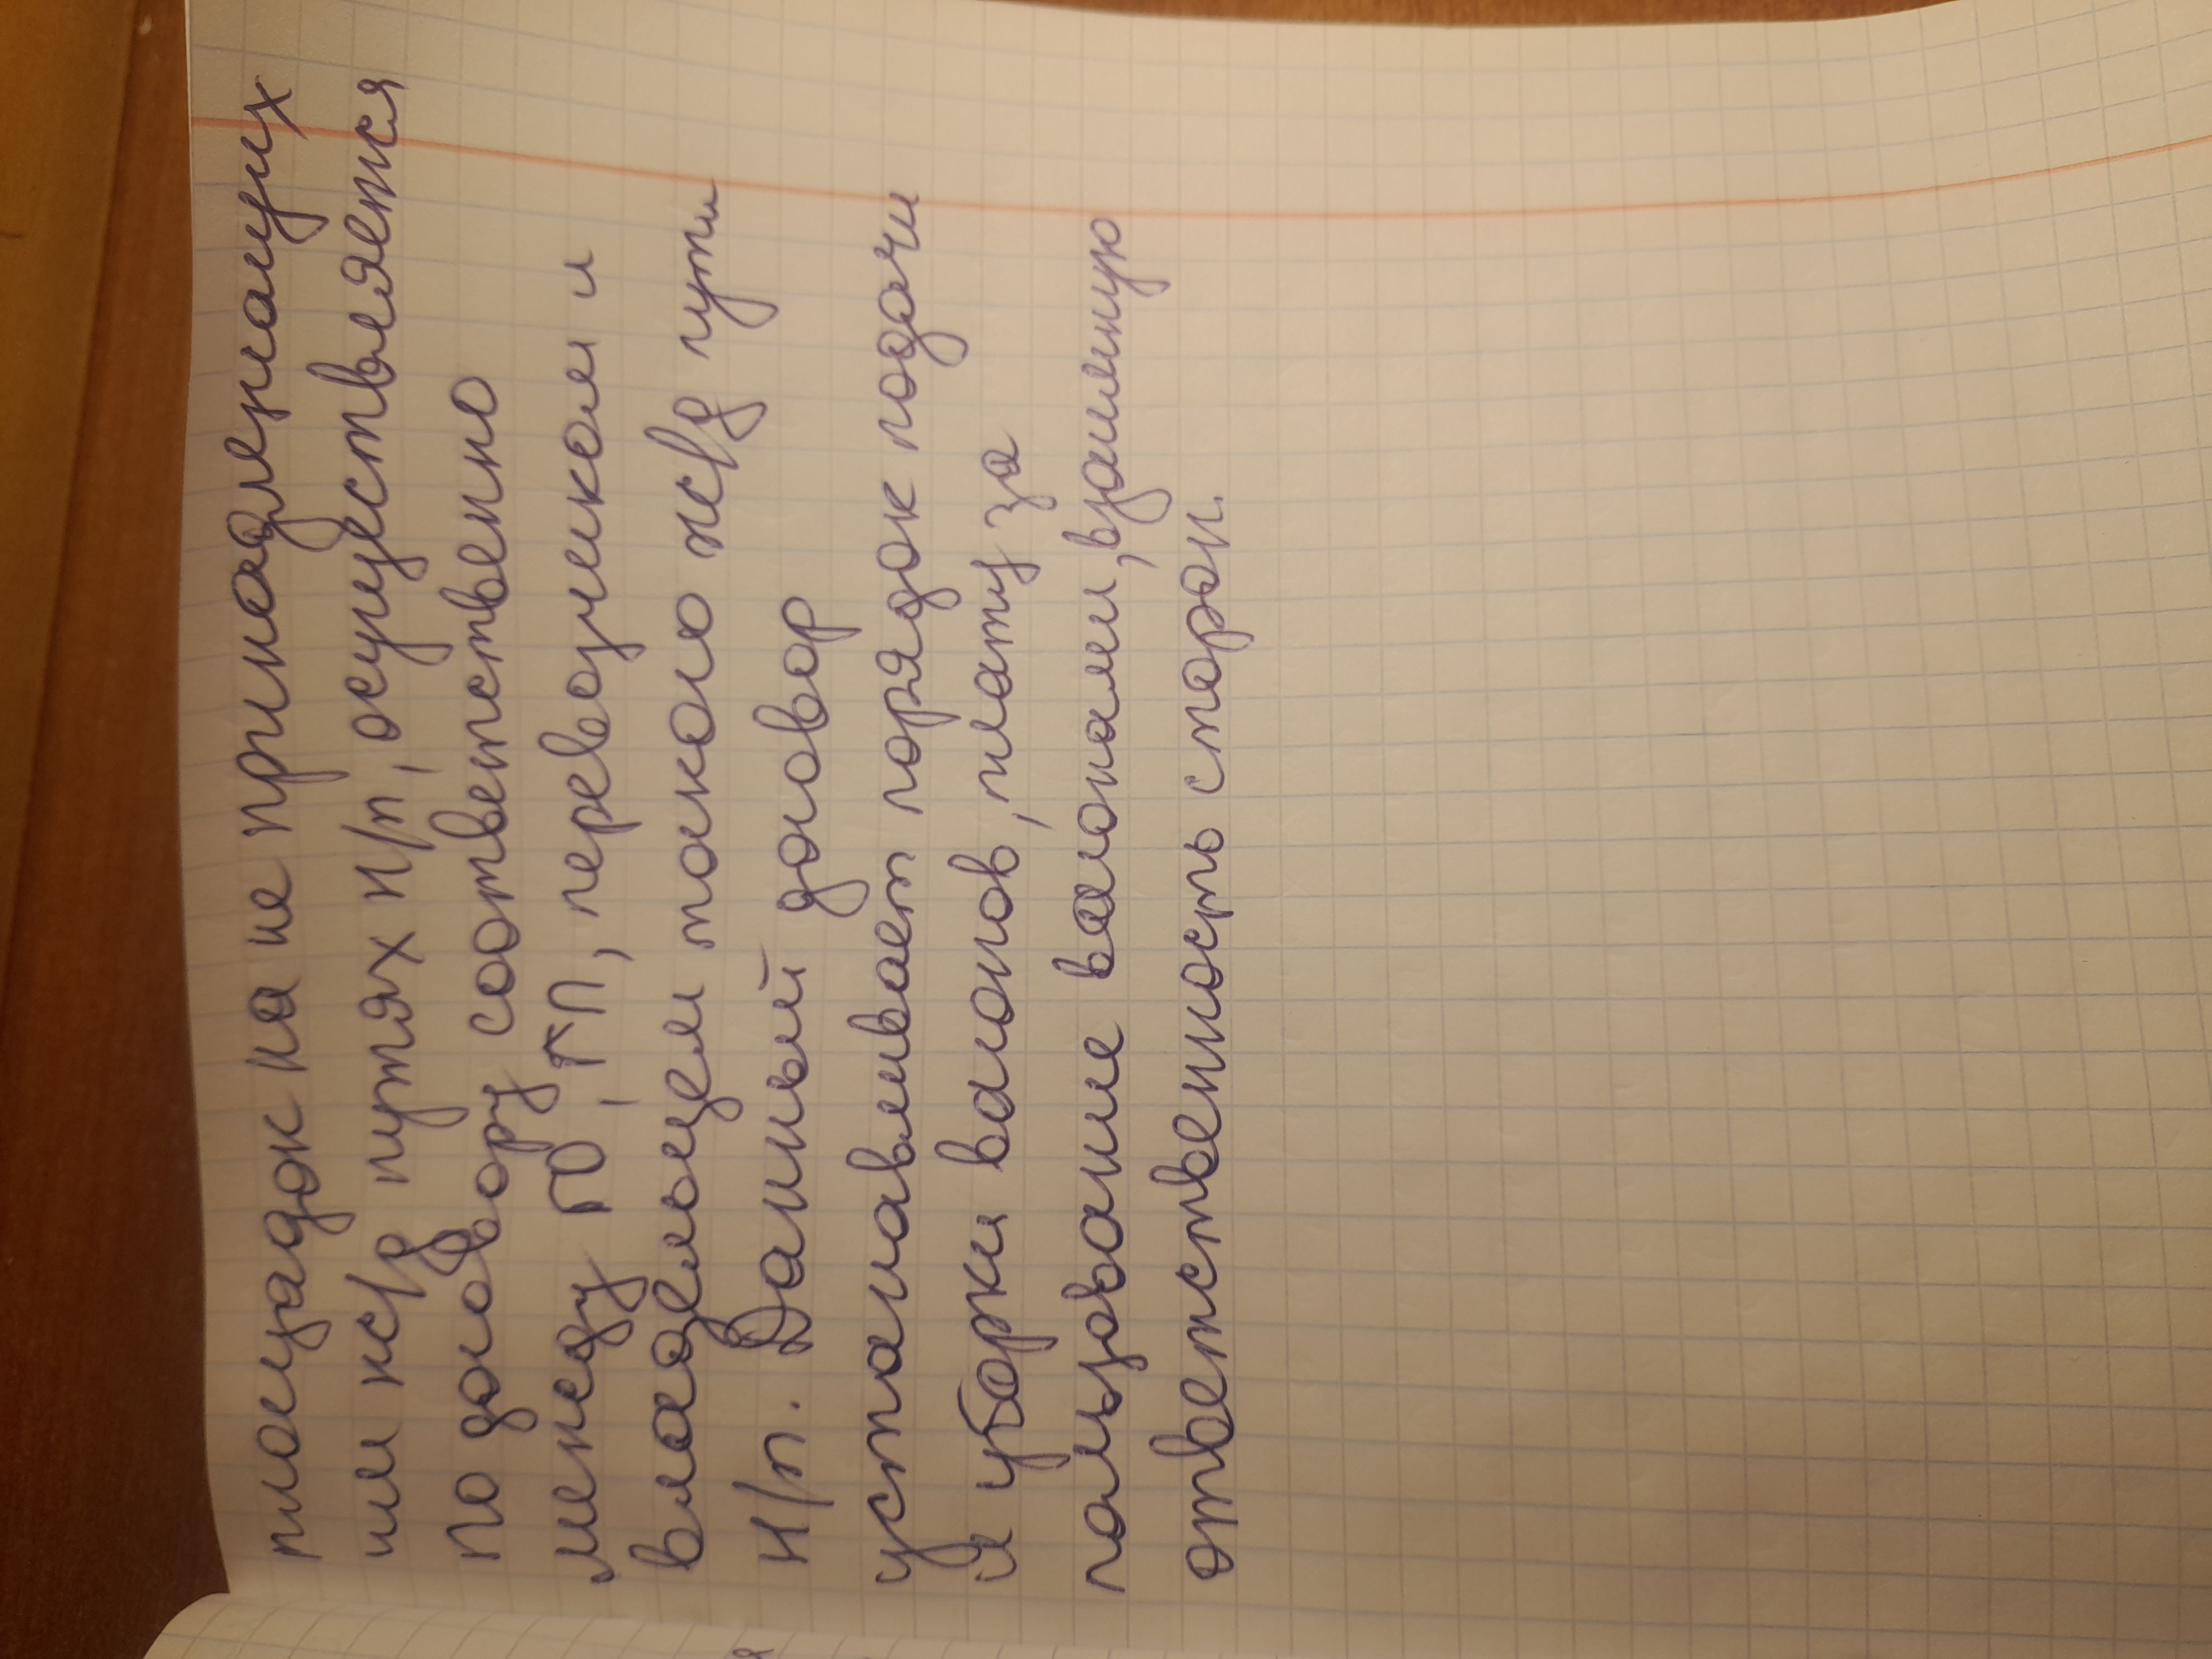 площадок на не принадлежащих
им ж/д путях н/п, осуществляется
по договору соответственно
между ГО, ГП, перевозчиком и
владельцем такого ж/д пути
н/п. Данный договор
устанавливает порядок подачи
и уборки вагонов, плату за
пользование вагонами, взаимную
ответственность сторон.